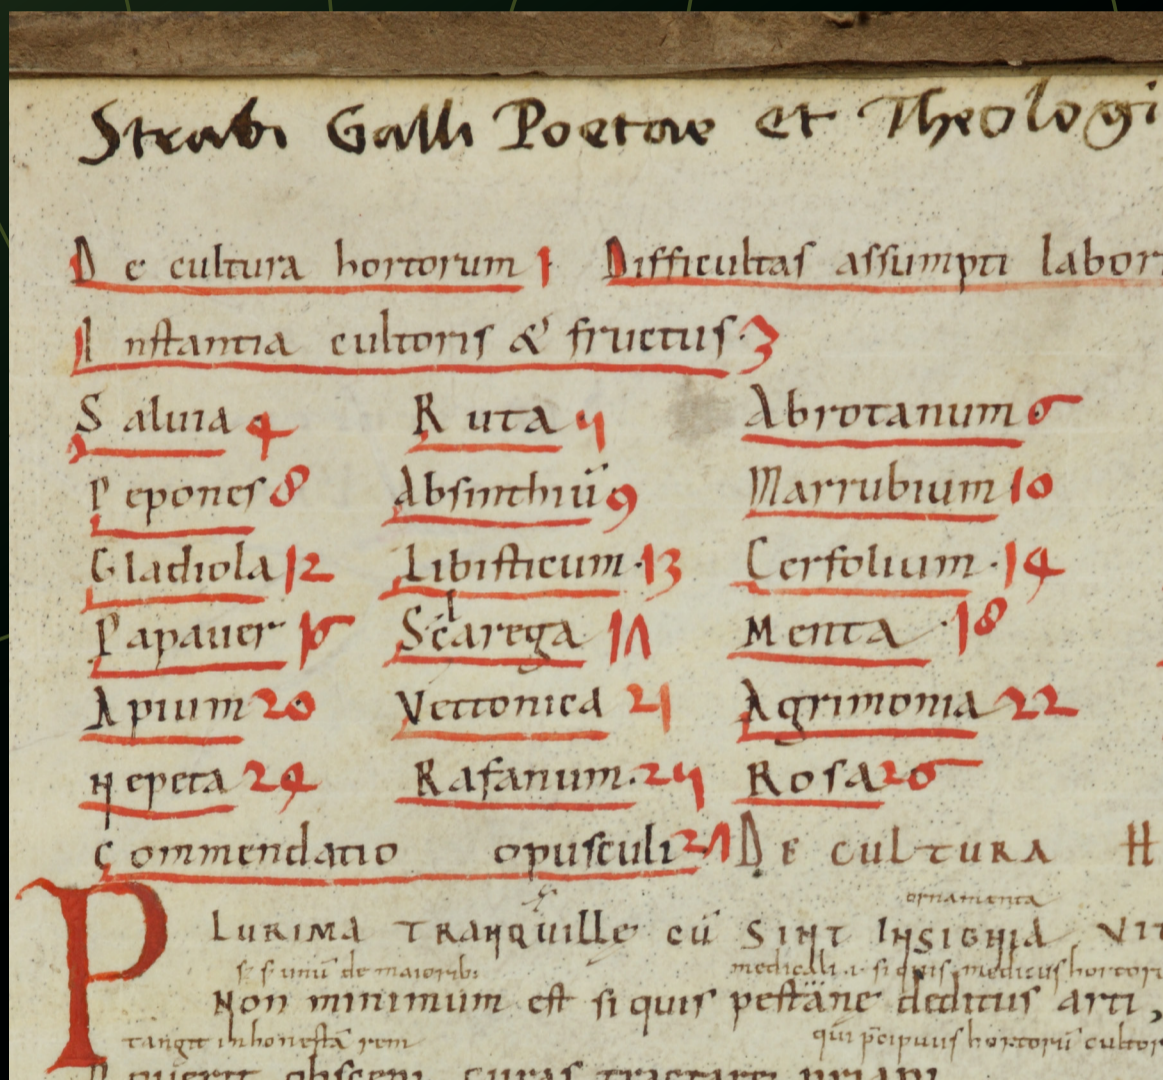 Strabi Galli Poetae et Theologi
De cultura hortorum 1 Difficultas assumpti labor
Instantia cultoris & fructus. 3
Saluia 4 Ruta 5 Abrotanum 6
Pepones 8 Absinthiū 9 Marrubium 10
Gladiola 12 Libisticum. 13 Cerfolium. 14
Papauer 16 Sclarega 17 Menta. 18
Apium 20 Vettonica 21 Agrimonia 22
Nepeta 24 Rafanum. 25 Rosa 26
Commendatio opusculi 27 DE CULTURA H
ornamenta
PLURIMA TRANQuille cū SINT INSIGNIA VIT
medicali .i. si quis medicus hortor
Non minimum est si quis pestäne deditus arti,
tangit inhonestā rem qui p̄cipuus hortorū cultor